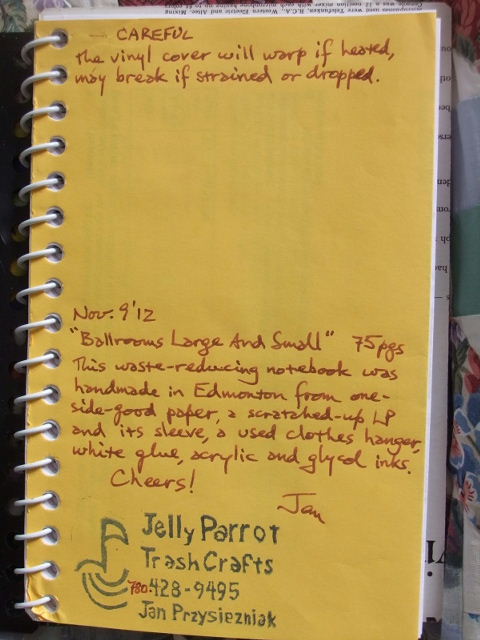 — CAREFUL
the vinyl cover will warp if heated,
may break if strained or dropped.
Nov. 9 '12
"Ballrooms Large And Small" 75pgs
This waste-reducing notebook was
handmade in Edmonton from one-
side-good paper, a scratched-up LP
and its sleeve, a used clothes hanger,
white glue, acrylic and glycol inks.
Cheers!
Jan
Jelly Parrot
TrashCrafts
780-428-9495
Jan Przysiezniak